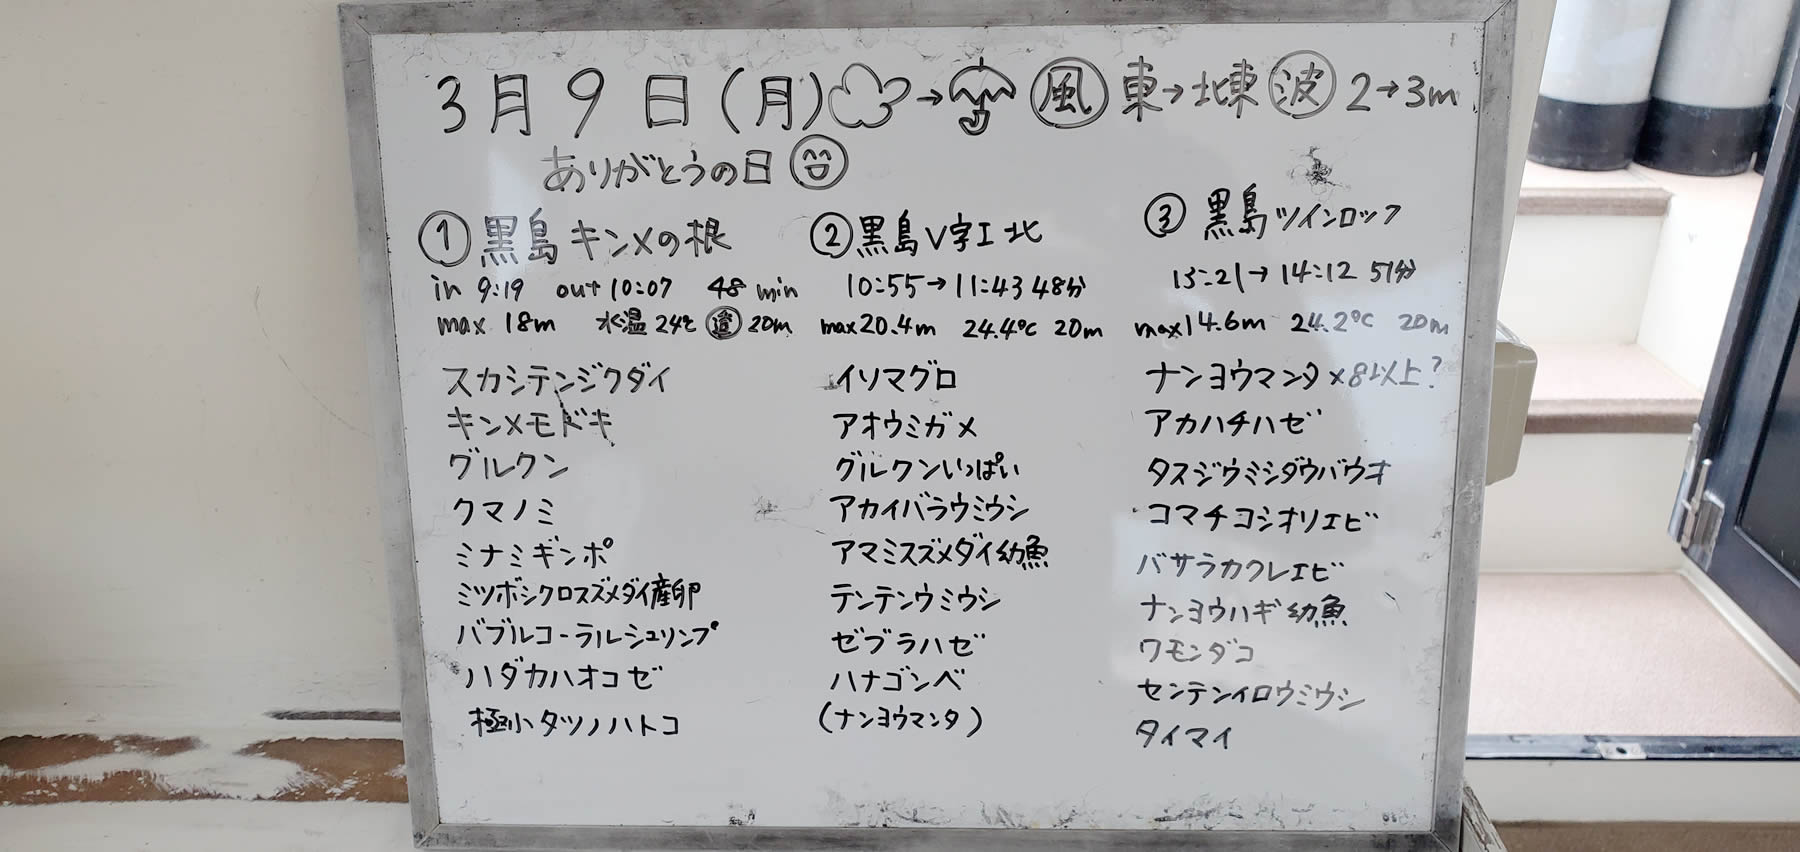 3月9日(月) → 風 東→北東 波 2→3m
ありがとうの日
① 黒島 キンメの根
in 9:19 out 10:07 48 min
max 18m 水温 24℃ 透 20m
スカシテンジクダイ
キンメモドキ
グルクン
クマノミ
ミナミギンポ
ミツボシクロスズメダイ産卵
バブルコーラルシュリンプ
ハダカハオコゼ
極小タツノハトコ
② 黒島 V字I 北
10:55→11:43 48分
max20.4m 24.4℃ 20m
イソマグロ
アオウミガメ
グルクンいっぱい
アカイバラウミウシ
アマミスズメダイ幼魚
テンテンウミウシ
ゼブラハゼ
ハナゴンベ
(ナンヨウマンタ)
③ 黒島 ツインロック
13:21→14:12 51分
max14.6m 24.2℃ 20m
ナンヨウマンタ×8以上?
アカハチハゼ
タスジウミシダウバウオ
コマチコシオリエビ
バサラカクレエビ
ナンヨウハギ幼魚
ワモンダコ
センテンイロウミウシ
タイマイ